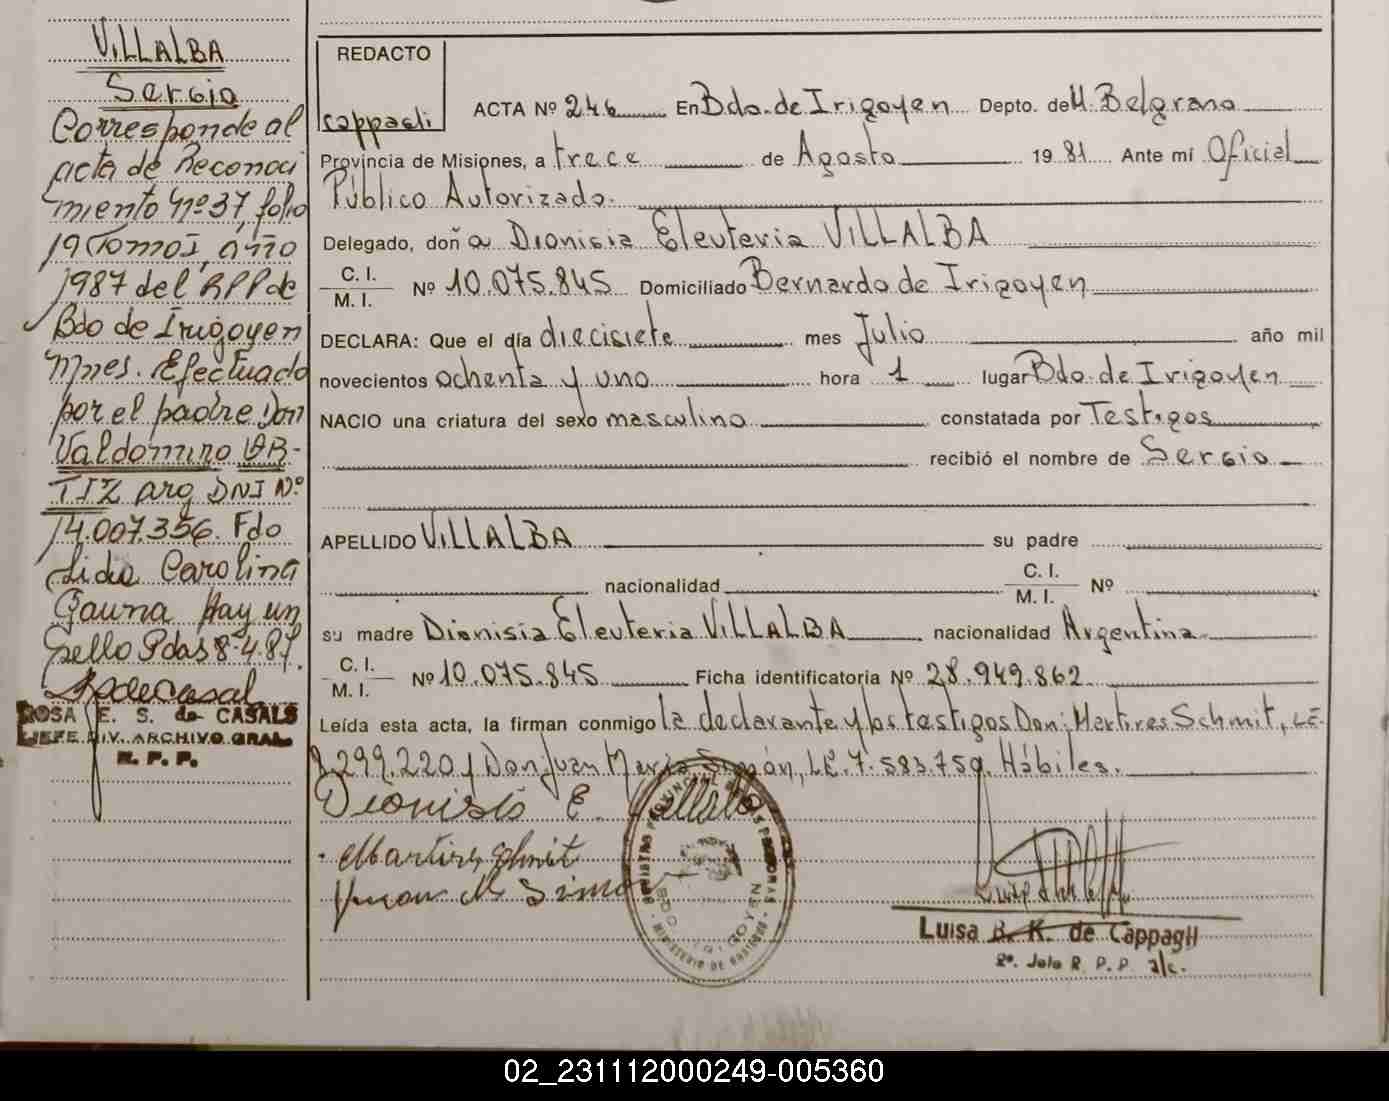 VILLALBA
Sergio
Corresponde al
acta de Reconoci
miento Nº 37, folio
19 Tomo I, año
1987 del RPP de
Bdo de Irigoyen
Mnes. Efectuado
por el padre Don
Valdomiro OR-
TIZ arg DNI Nº
14.007.356. Fdo
Lida Carolina
Gauna Hay un
sello Pdas 8-4.87.
ROSA E. S. de CASALS
JEFE DIV. ARCHIVO GRAL.
R. P. P.
REDACTO
Cappagli
ACTA Nº 246 En Bdo. de Irigoyen Depto. de M. Belgrano
Provincia de Misiones, a trece de Agosto 1981 Ante mí Oficial
Público Autorizado.
Delegado, doña Dionisia Eleuteria VILLALBA
C. I.
M. I. Nº 10.075.845 Domiciliado Bernardo de Irigoyen
DECLARA: Que el día diecisiete mes Julio año mil
novecientos ochenta y uno hora 1 lugar Bdo. de Irigoyen
NACIO una criatura del sexo masculino constatada por Testigos
recibió el nombre de Sergio
APELLIDO VILLALBA su padre
nacionalidad C. I.
M. I. Nº
su madre Dionisia Eleuteria VILLALBA nacionalidad Argentina
C. I.
M. I. Nº 10.075.845 Ficha identificatoria Nº 28.949.862
Leída esta acta, la firman conmigo la declarante y los testigos Don: Martires Schmit, LE.
299.220 y Don Juan María Simón, LE. 7.583.759. Hábiles.
Dionisia E. Villalba
Martires Schmit
Juan M Simon
REGISTRO PROVINCIAL DE LAS PERSONAS
BDO. IRIGOYEN
MINISTERIO DE GOBIERNO
Luisa B. K. de Cappagli
2º. Jefe R. P. P. a/c.
02_231112000249-005360